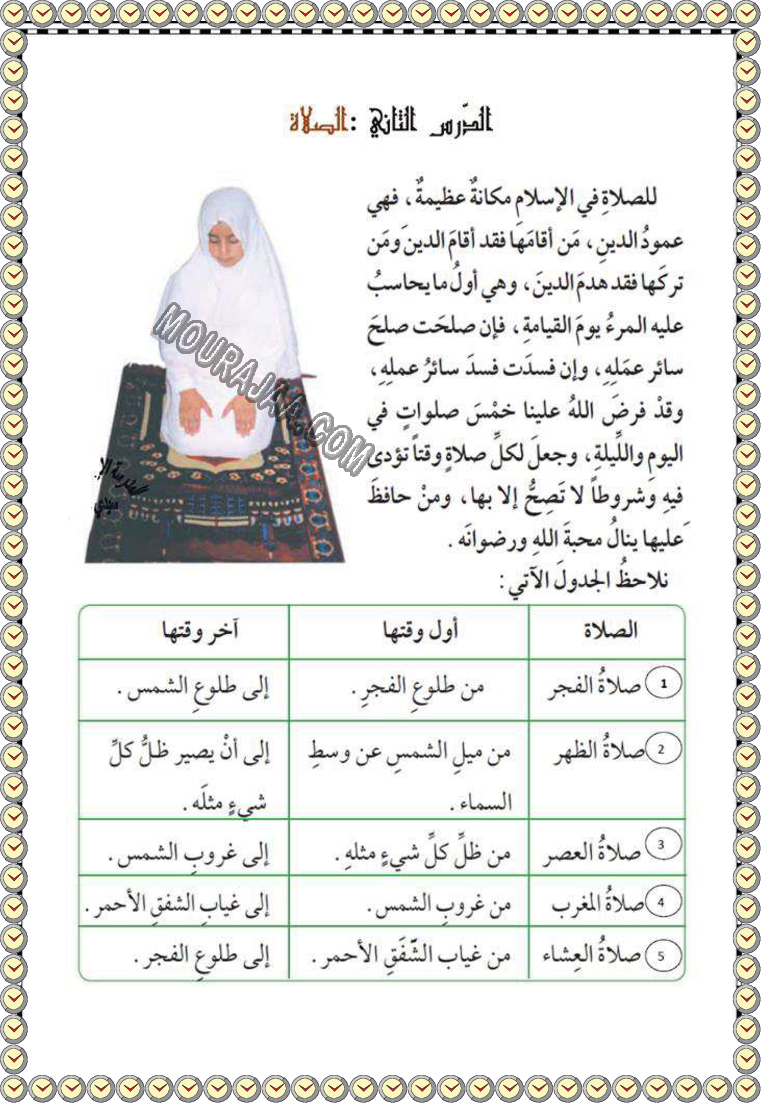 الدّرس الثاني :الصلاة
للصلاةِ في الإسلامِ مكانةٌ عظيمةٌ ، فهي
عمودُ الدينِ ، مَن أقامَهَا فقد أقامَ الدينَ ومَن
تركَها فقد هدمَ الدينَ ، وهي أولُ ما يحاسبُ
عليه المرءُ يومَ القيامةِ ، فإن صلحَت صلحَ
سائر عمَلِهِ ، وإن فسدَت فسدَ سائرُ عملِهِ ،
وقدْ فرضَ اللهُ علينا خمْسَ صلواتٍ في
اليومِ واللّيلةِ ، وجعلَ لكلِّ صلاةٍ وقتاً تؤدى
فيهِ وَشروطاً لا تَصِحُّ إلا بها ، ومنْ حافظَ
عليها ينالُ محبةَ اللهِ ورضوانَه .
MOURAJAA.COM
نلاحظُ الجدولَ الآتي :
الصلاة أول وقتها آخر وقتها
1 صلاةُ الفجر من طلوعِ الفجرِ . إلى طلوعِ الشمس .
2 صلاةُ الظهر من ميلِ الشمسِ عن وسطِ إلى أنْ يصير ظلُّ كلِّ
السماء . شيءٍ مثلَه .
3 صلاةُ العصر من ظلِّ كلِّ شيءٍ مثلهِ . إلى غروبِ الشمس .
4 صلاةُ المغرب من غروبِ الشمس . إلى غيابِ الشفقِ الأحمر .
5 صلاةُ العِشاء من غياب الشَّفَقِ الأحمر . إلى طلوعِ الفجر .